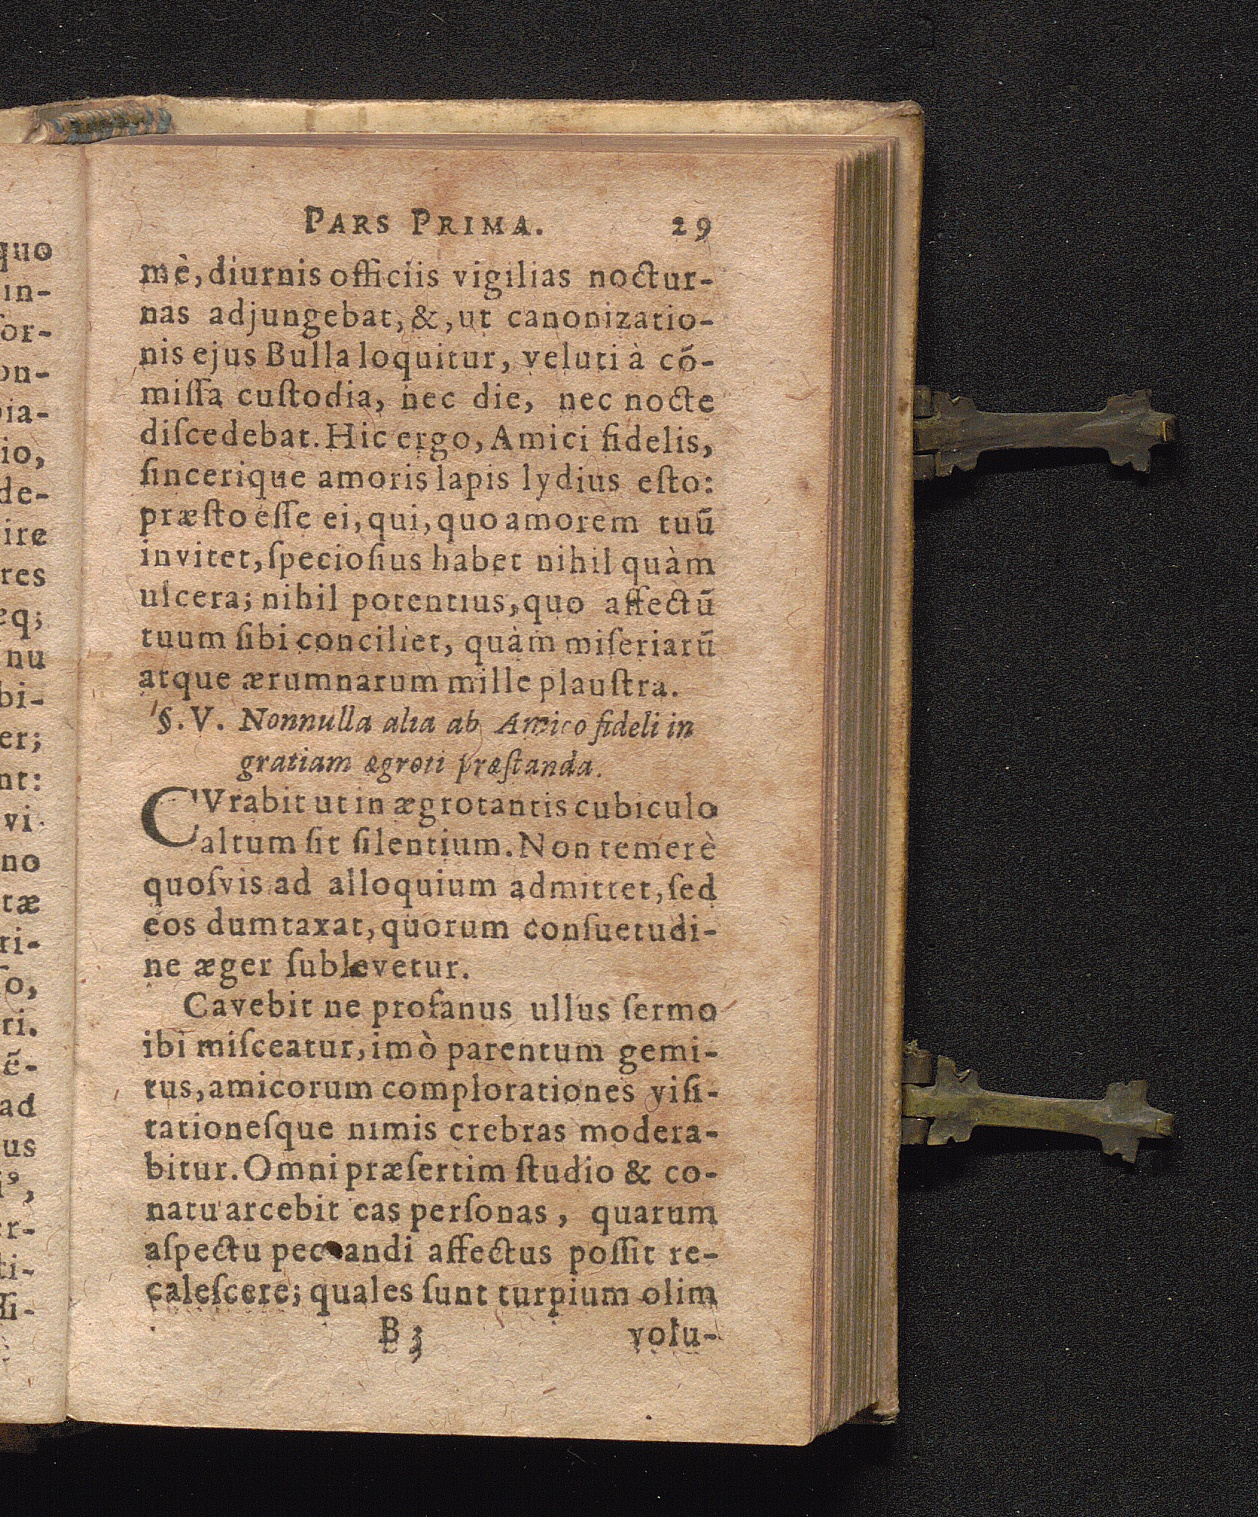 PARS PRIMA. 29
mè, diurnis officiis vigilias noctur-
nas adjungebat, &, ut canonizatio-
nis ejus Bulla loquitur, veluti à cõ-
miſſa cuſtodia, nec die, nec nocte
diſcedebat. Hic ergo, Amici fidelis,
ſincerique amoris lapis lydius eſto:
præſto eſſe ei, qui, quo amorem tuũ
invitet, ſpecioſius habet nihil quàm
ulcera; nihil potentius, quo affectũ
tuum ſibi conciliet, quàm miſeriarũ
atque ærumnarum mille plauſtra.
§. V. Nonnulla alia ab Amico fideli in
gratiam ægroti præſtanda.
CVrabit ut in ægrotantis cubiculo
altum ſit ſilentium. Non temerè
quoſvis ad alloquium admittet, ſed
eos dumtaxat, quorum conſuetudi-
ne æger ſublevetur.
Cavebit ne profanus ullus ſermo
ibi miſceatur, imò parentum gemi-
tus, amicorum complorationes viſi-
tationeſque nimis crebras modera-
bitur. Omni præſertim ſtudio & co-
natu arcebit eas perſonas, quarum
aſpectu peccandi affectus poſſit re-
caleſcere; quales ſunt turpium olim
B 3 volu-